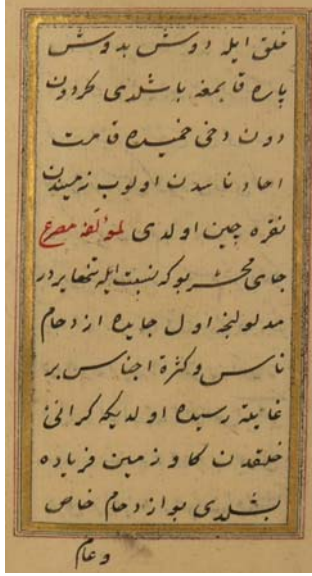 خلق ایله دوش بدوش
پاره قاپمغه باشلدی گردون
دون دخی خمیده قامت
احاد ناسدن اولوب زمیندن
نقره چین اولدی لمؤلفه مصرع
جای محشر بوکه نسبت ایله تنها یردر
مدلولنجه اول جایده ازدحام
ناس و کثرة اجناس بر
غایته رسیده اولدیکه کرانئ
خلقدن کاو زمین فریاده
بشلدی بو ازدحام خاص
وعام